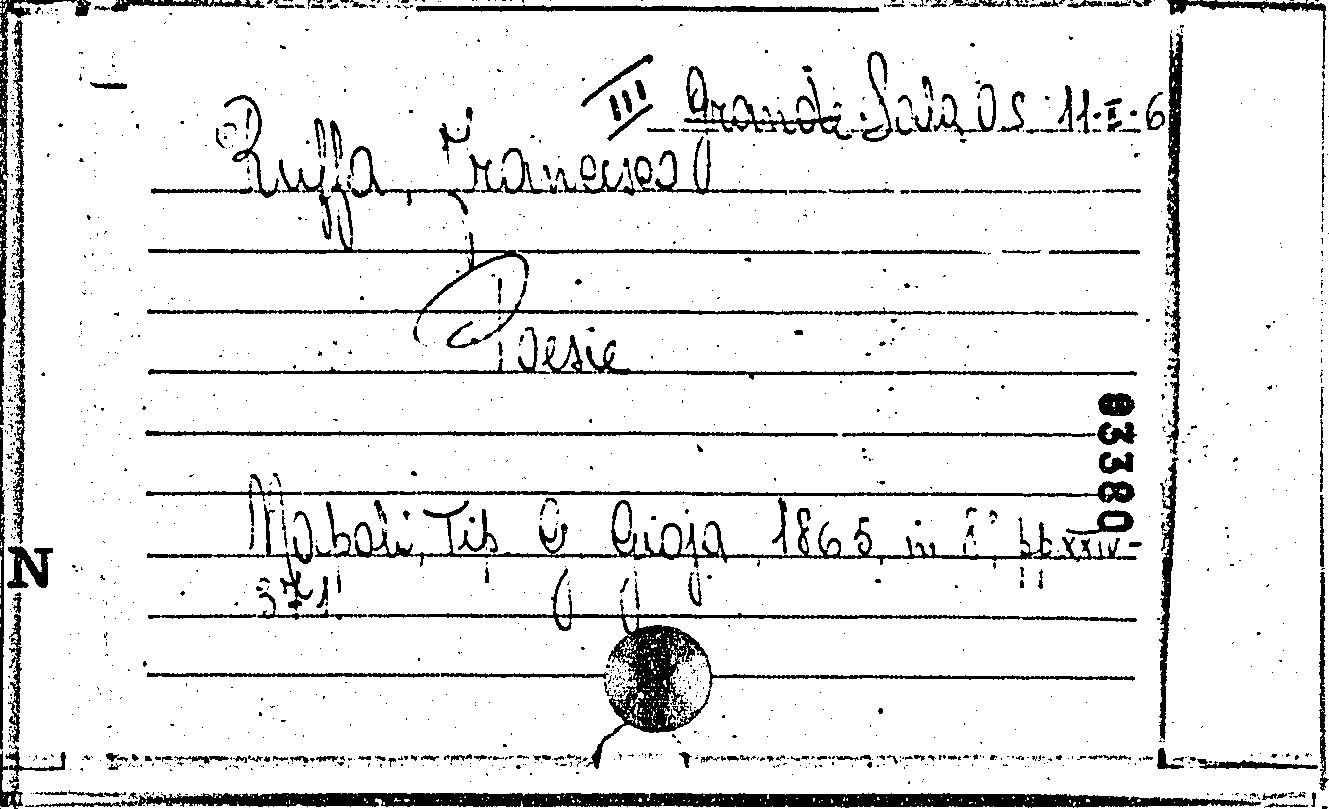 III Grande Sala OS 11-I-6
Ruffa, Francesco
Poesie
83380
Napoli, Tip. G. Gioja, 1865, in 8°, pp. XXIV-
371
N